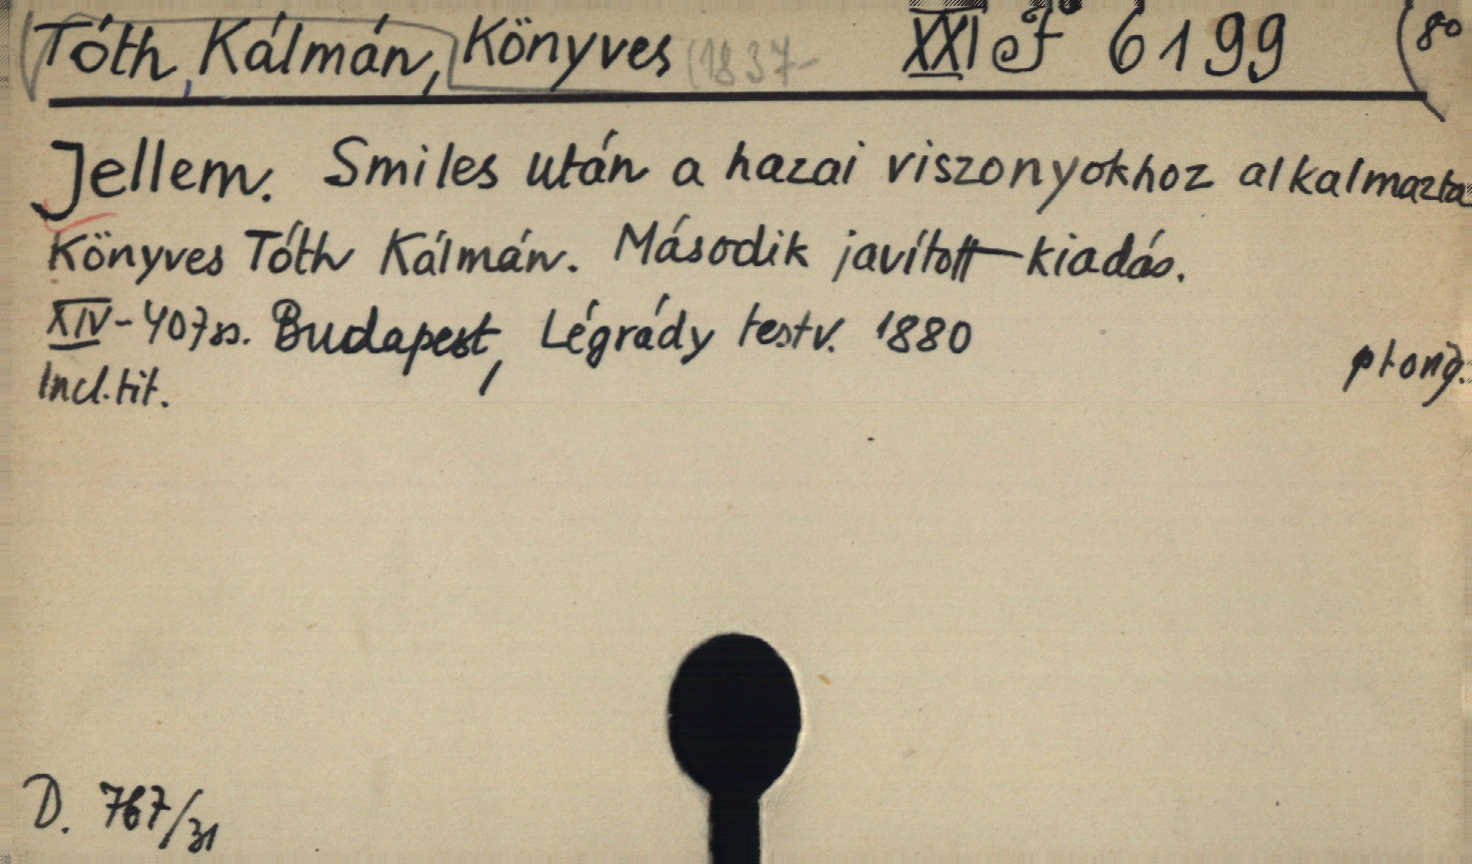 Tóth, Kálmán, Könyves (1837- XXI J 6199 (80
Jellem. Smiles után a hazai viszonyokhoz alkalmazta
Könyves Tóth Kálmán. Második javított kiadás.
XIV-407 ss. Budapest, Légrády testv. 1880
Incl. tit.
D. 767/31